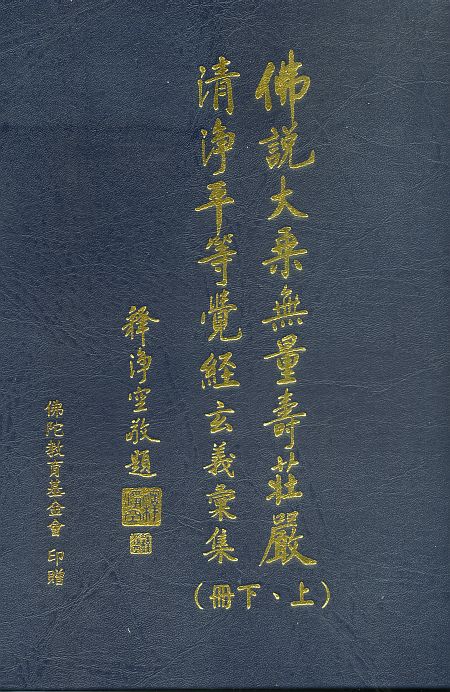 佛説大乘無量壽莊嚴
清淨平等覺經玄義彙集
(上、下冊)
釋淨空敬題
佛陀教育基金會 印贈